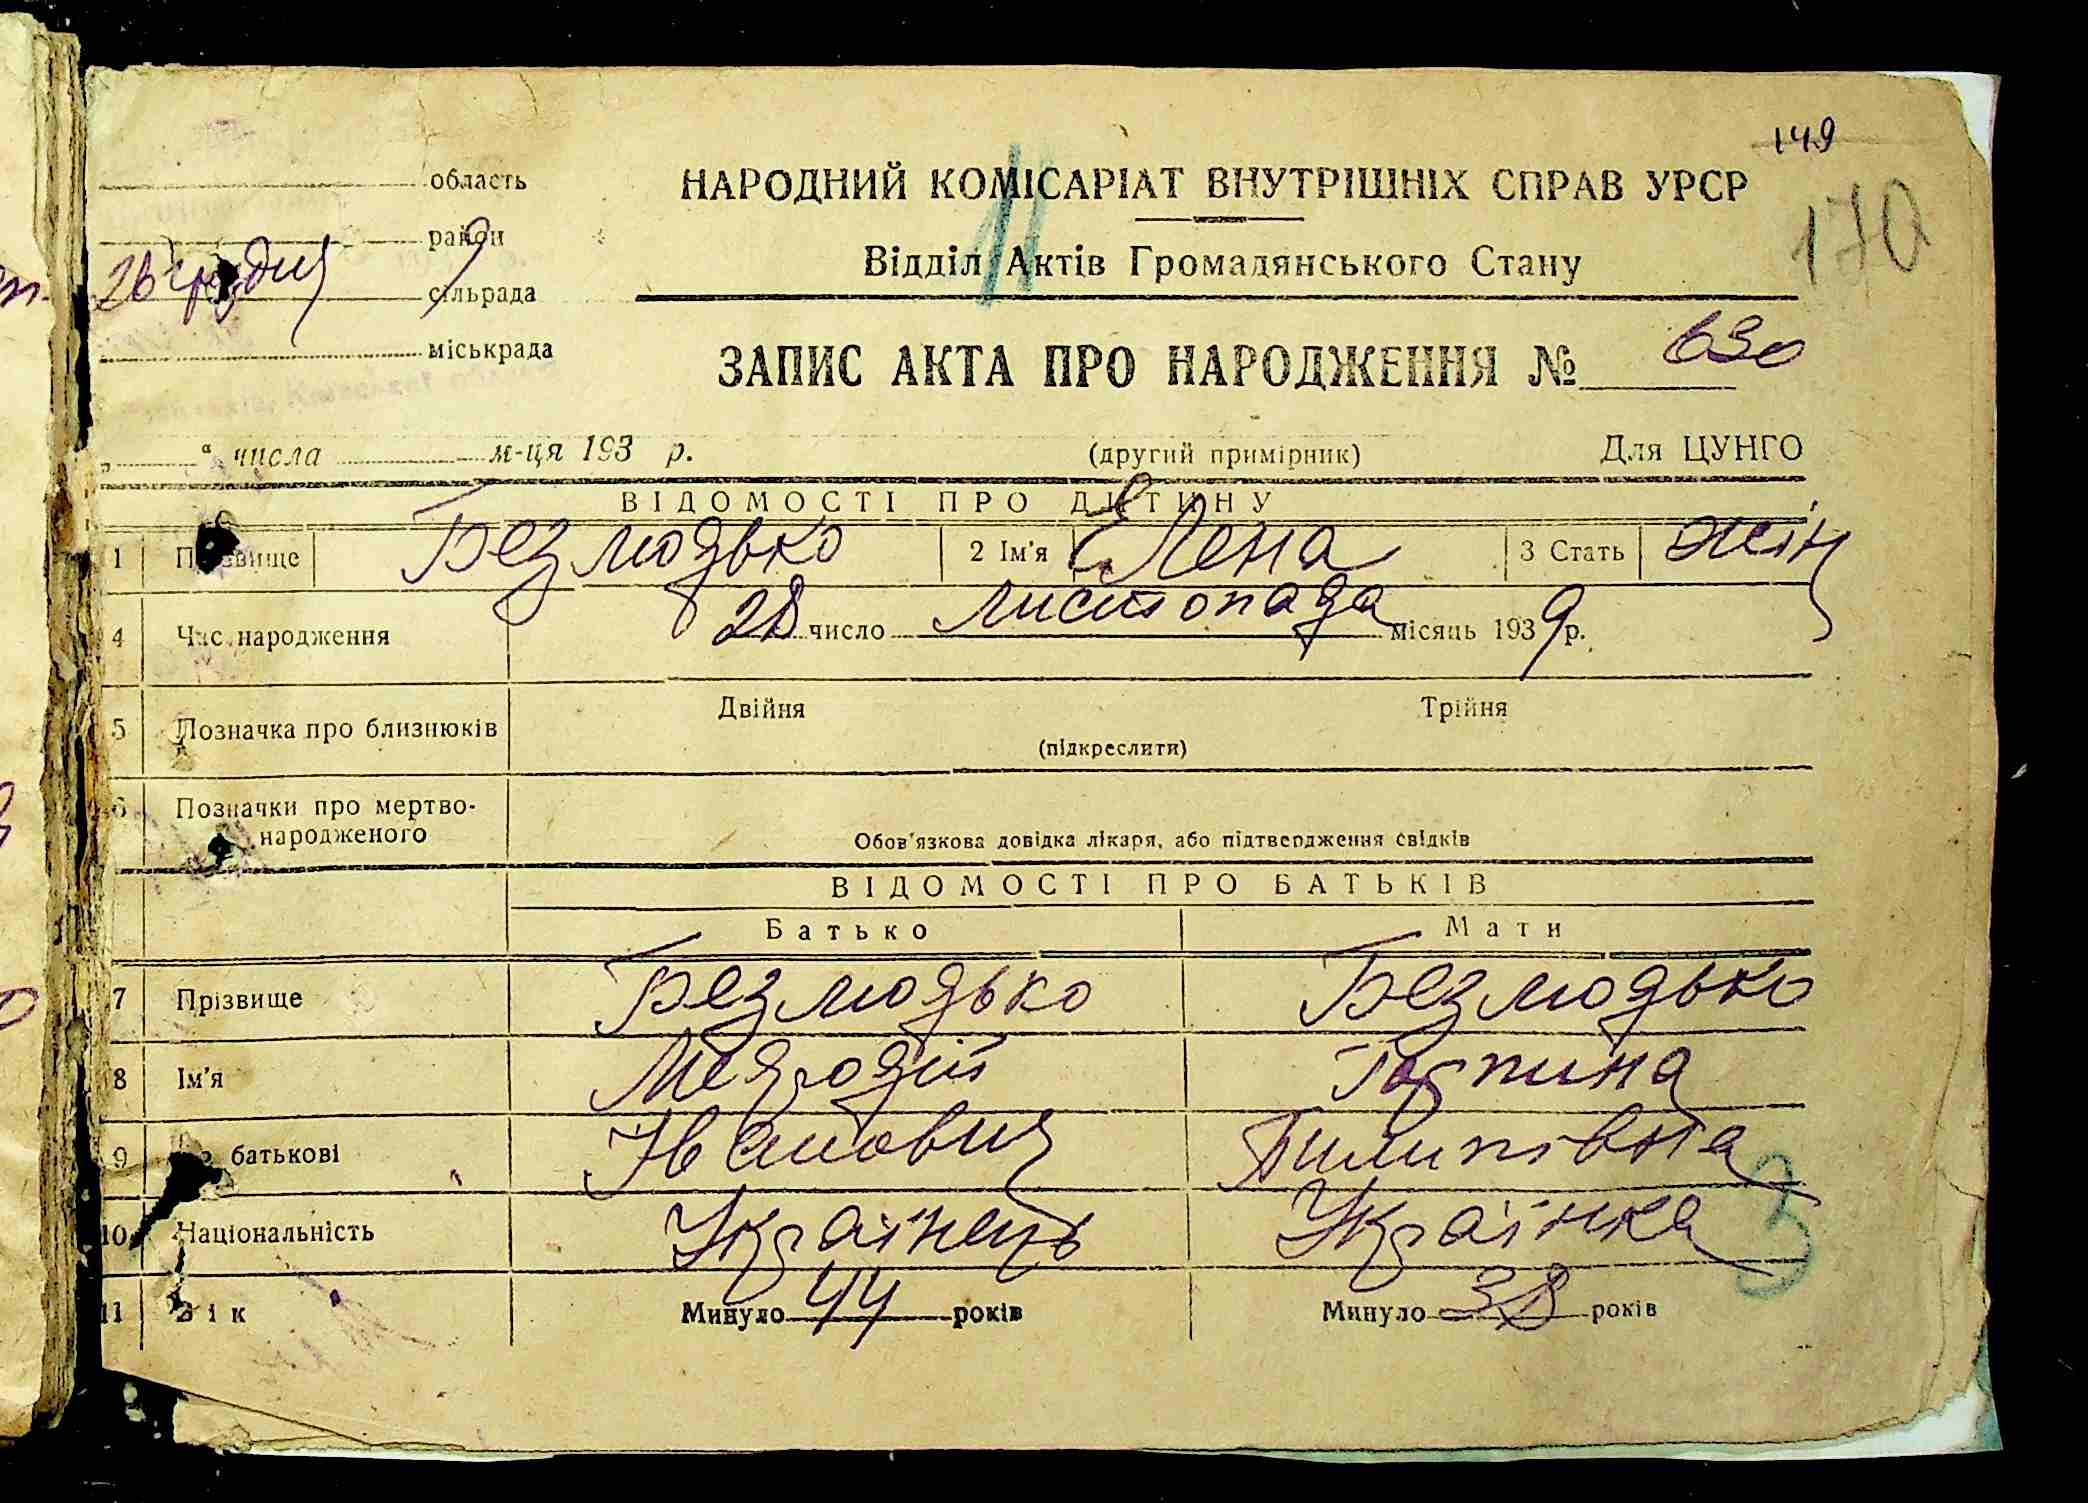 149
170
область
НАРОДНИЙ КОМІСАРІАТ ВНУТРІШНІХ СПРАВ УРСР
11
район
Відділ Актів Громадянського Стану
26 грудня 9
сільрада
міськрада
ЗАПИС АКТА ПРО НАРОДЖЕННЯ № 630
„ “ числа м-ця 193 р.
(другий примірник)
Для ЦУНГО
ВІДОМОСТІ ПРО ДИТИНУ
1 Прізвище Безмюдько 2 Ім'я Елена 3 Стать жін
4 Час народження 28 число листопада місяць 1939 р.
5 Позначка про близнюків Двійня Трійня
(підкреслити)
6 Позначки про мертво-
народженого
Обов'язкова довідка лікаря, або підтвердження свідків
ВІДОМОСТІ ПРО БАТЬКІВ
Батько Мати
7 Прізвище Безмюдько Безмюдько
8 Ім'я Мефодій Горпина
9 По батькові Іванович Пилипівна
3
10 Національність Українець Українка
11 Вік Минуло 44 років Минуло 38 років